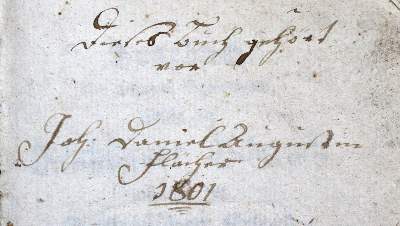 Dieses Buch gehört
vor
Joh: Daniel Augustin
Flächer
1801